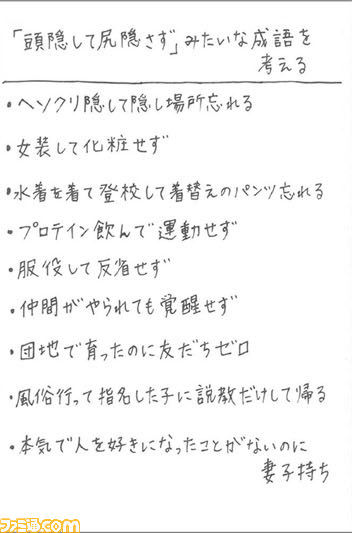 「頭隠して尻隠さず」みたいな成語を
考える
・ヘソクリ隠して隠し場所忘れる
・女装して化粧せず
・水着を着て登校して着替えのパンツ忘れる
・プロテイン飲んで運動せず
・服役して反省せず
・仲間がやられても覚醒せず
・団地で育ったのに友だちゼロ
・風俗行って指名した子に説教だけして帰る
・本気で人を好きになったことがないのに
妻子持ち
ファミ通.com